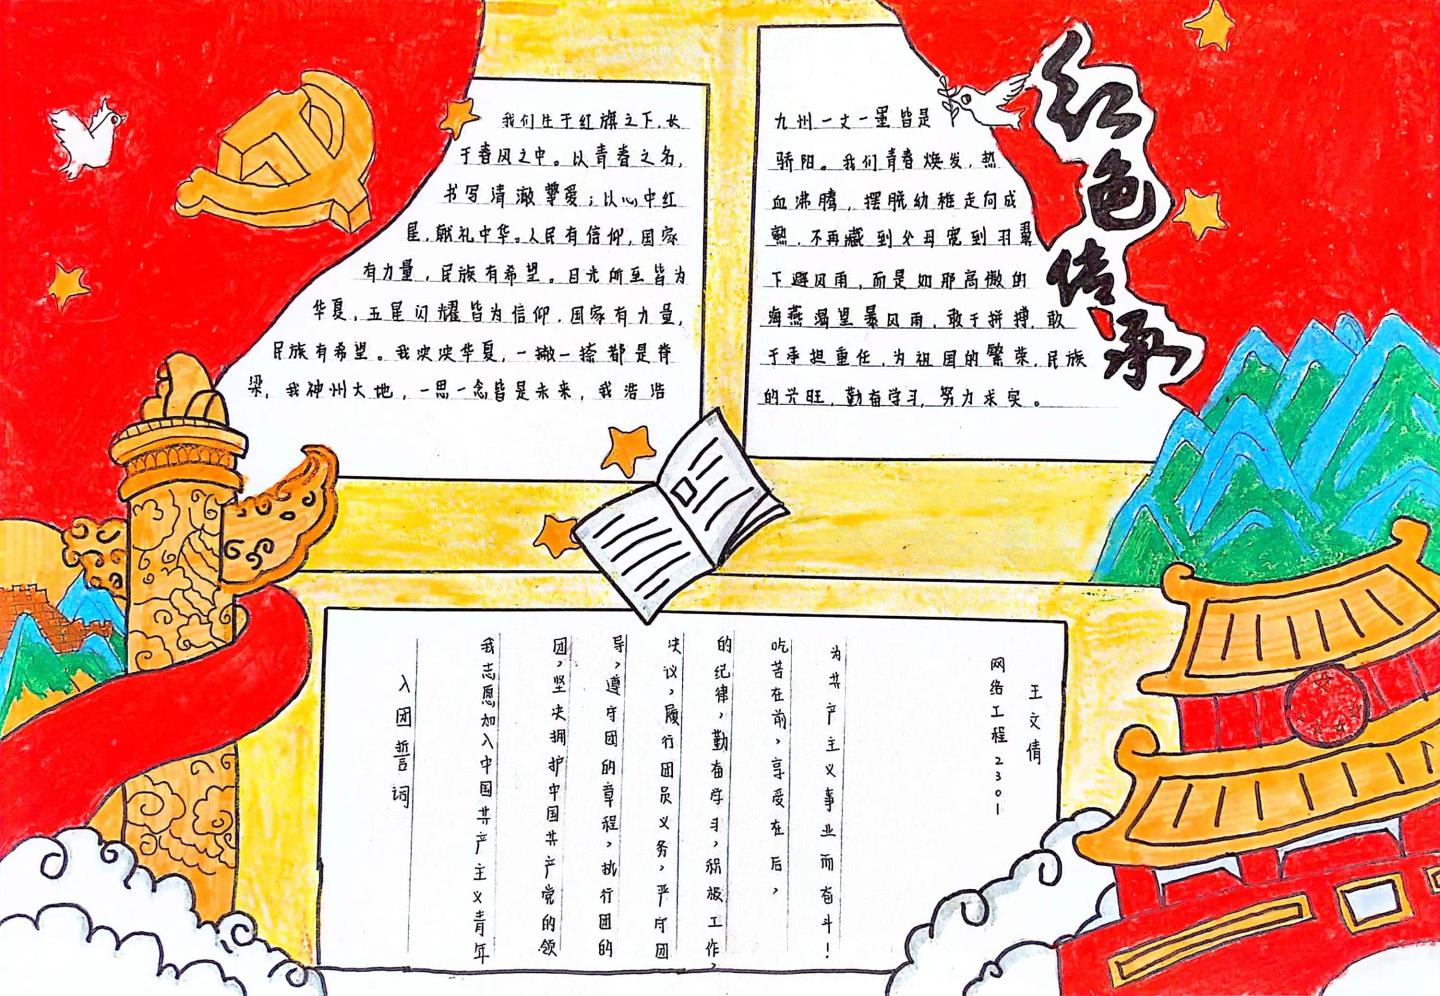 红色传承
我们生于红旗之下，长
于春风之中。以青春之名，
书写清澈挚爱；以心中红
星，献礼中华。人民有信仰，国家
有力量，民族有希望。目光所至皆为
华夏，五星闪耀皆为信仰，国家有力量，
民族有希望。我泱泱华夏，一撇一捺都是脊
梁，我神州大地，一思一念皆是未来，我浩浩
九州一丈一墨皆是
骄阳。我们青春焕发，热
血沸腾，摆脱幼稚走向成
熟，不再藏到父母宽到羽翼
下避风雨，而是如那高傲的
海燕渴望暴风雨，敢于拼搏，敢
于承担重任，为祖国的繁荣，民族
的兴旺，勤奋学习，努力求实。
入团誓词
我志愿加入中国共产主义青年
团，坚决拥护中国共产党的领
导，遵守团的章程，执行团的
决议，履行团员义务，严守团
的纪律，勤奋学习，积极工作，
吃苦在前，享受在后，
为共产主义事业而奋斗！
网络工程2301
王文倩